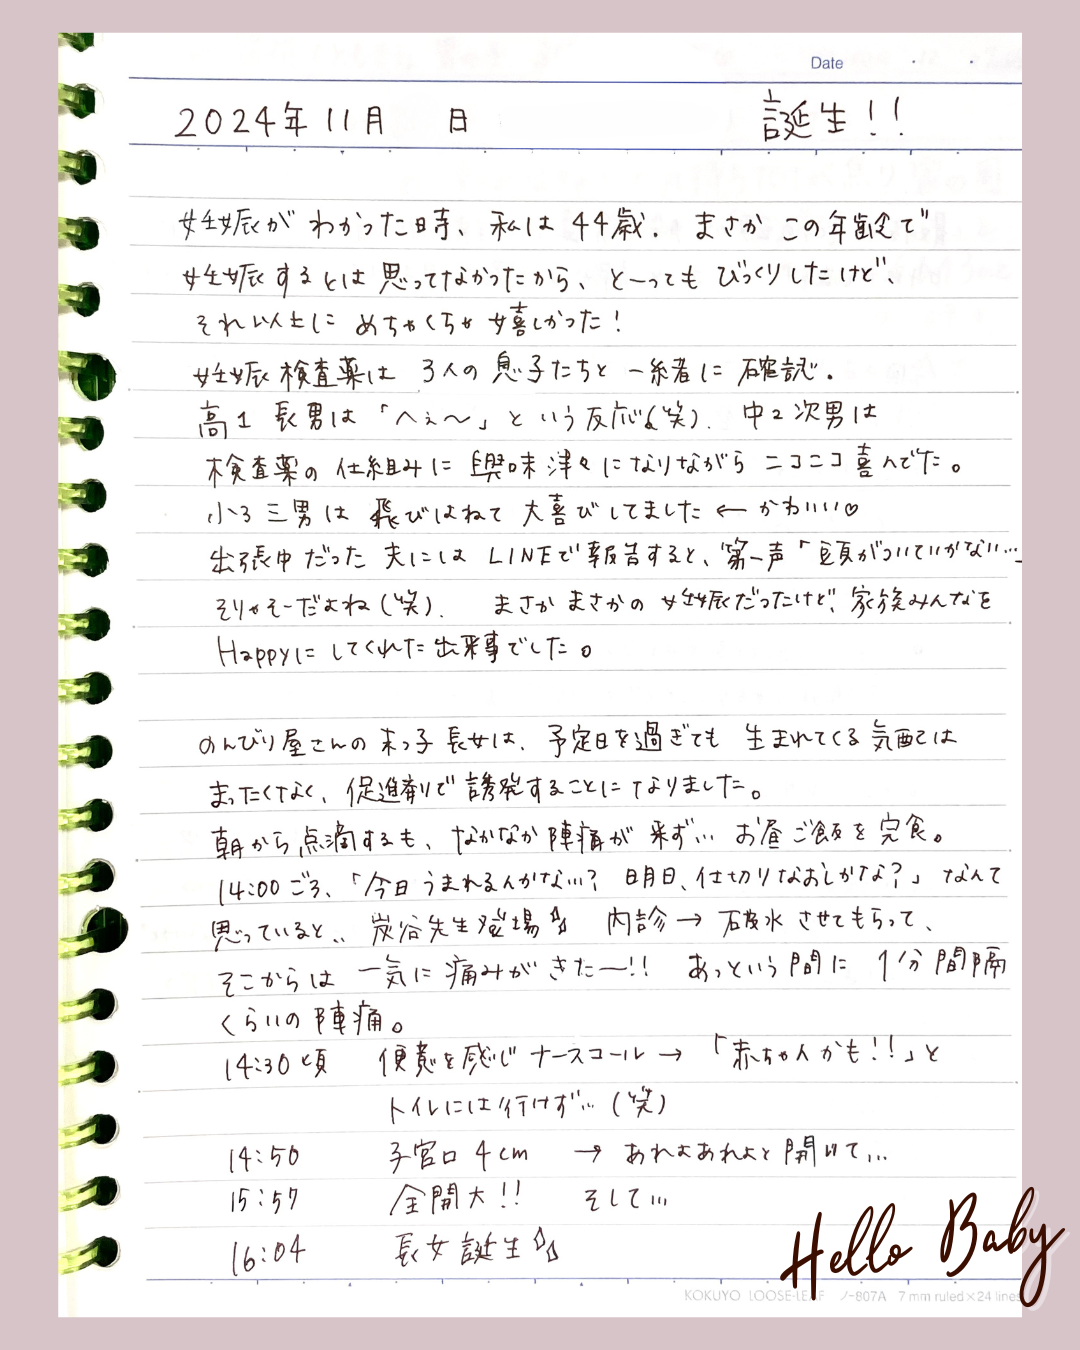 Date
2024年11月 日 誕生!!
妊娠がわかった時、私は44歳. まさかこの年齢で
妊娠するとは思ってなかったから、と〜ってもびっくりしたけど、
それ以上にめちゃくちゃ嬉しかった!
妊娠検査薬は3人の息子たちと一緒に確認.
高1長男は「へぇ〜」という反応(笑). 中2次男は
検査薬の仕組みに興味津々になりながらニコニコ喜んでた。
小3三男は飛びはねて大喜びしてました←かわいい♡
出張中だった夫にはLINEで報告すると、第一声「頭がついていかない…」
そりゃそーだよね(笑). まさかまさかの妊娠だったけど、家族みんなを
Happyにしてくれた出来事でした。
のんびり屋さんの末っ子長女は、予定日を過ぎても生まれてくる気配は
まったくなく、促進剤で誘発することになりました。
朝から点滴するも、なかなか陣痛が来ず… お昼ご飯を完食。
14:00ごろ、「今日うまれるんかない…? 明日、仕切りなおしかな?」なんて
思っていると… 炭谷先生登場☆ 内診→破水させてもらって、
そこからは一気に痛みがきたー!! あっという間に1分間隔
くらいの陣痛。
14:30頃 便意を感じナースコール→「赤ちゃんかも!!」と
トイレには行けず…(笑)
14:50 子宮口4cm →あれよあれよと開いて…
15:57 全開大!! そして…
16:04 長女誕生☆
KOKUYO LOOSE-LEAF ノ-807A 7mm ruled×24 lines
Hello Baby